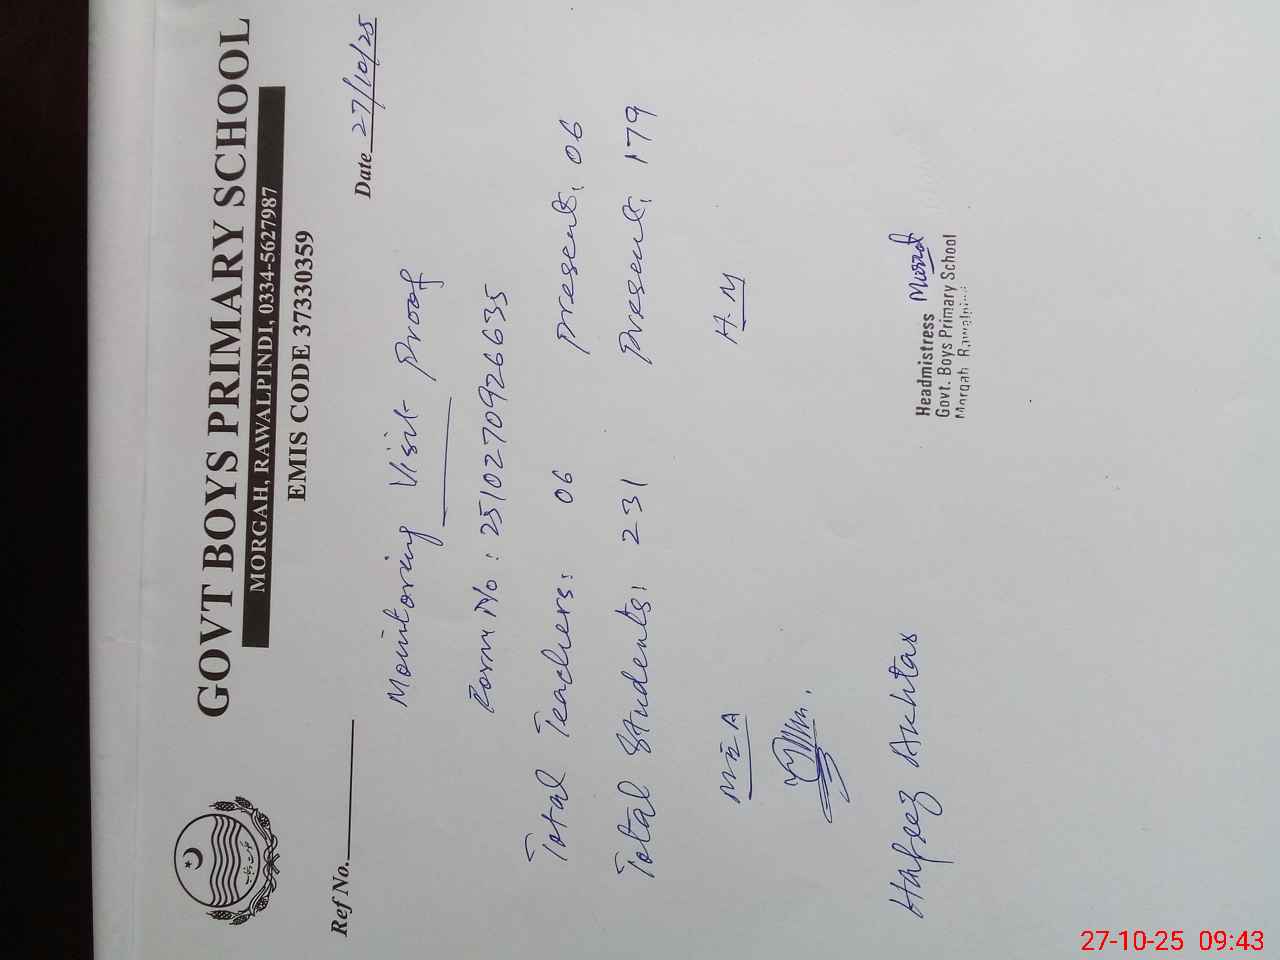 GOVT BOYS PRIMARY SCHOOL
MORGAH, RAWALPINDI, 0334-5627987
EMIS CODE 37330359
Ref No.
Date 27/10/25
Monitoring Visit Proof
Form No: 2510270926635
Total Teachers: 06 Present: 06
Total Students: 231 Present: 179
MEA H.M
Hafeez Akhtar
Headmistress
Govt. Boys Primary School
Morgah Rawalpindi
27-10-25 09:43